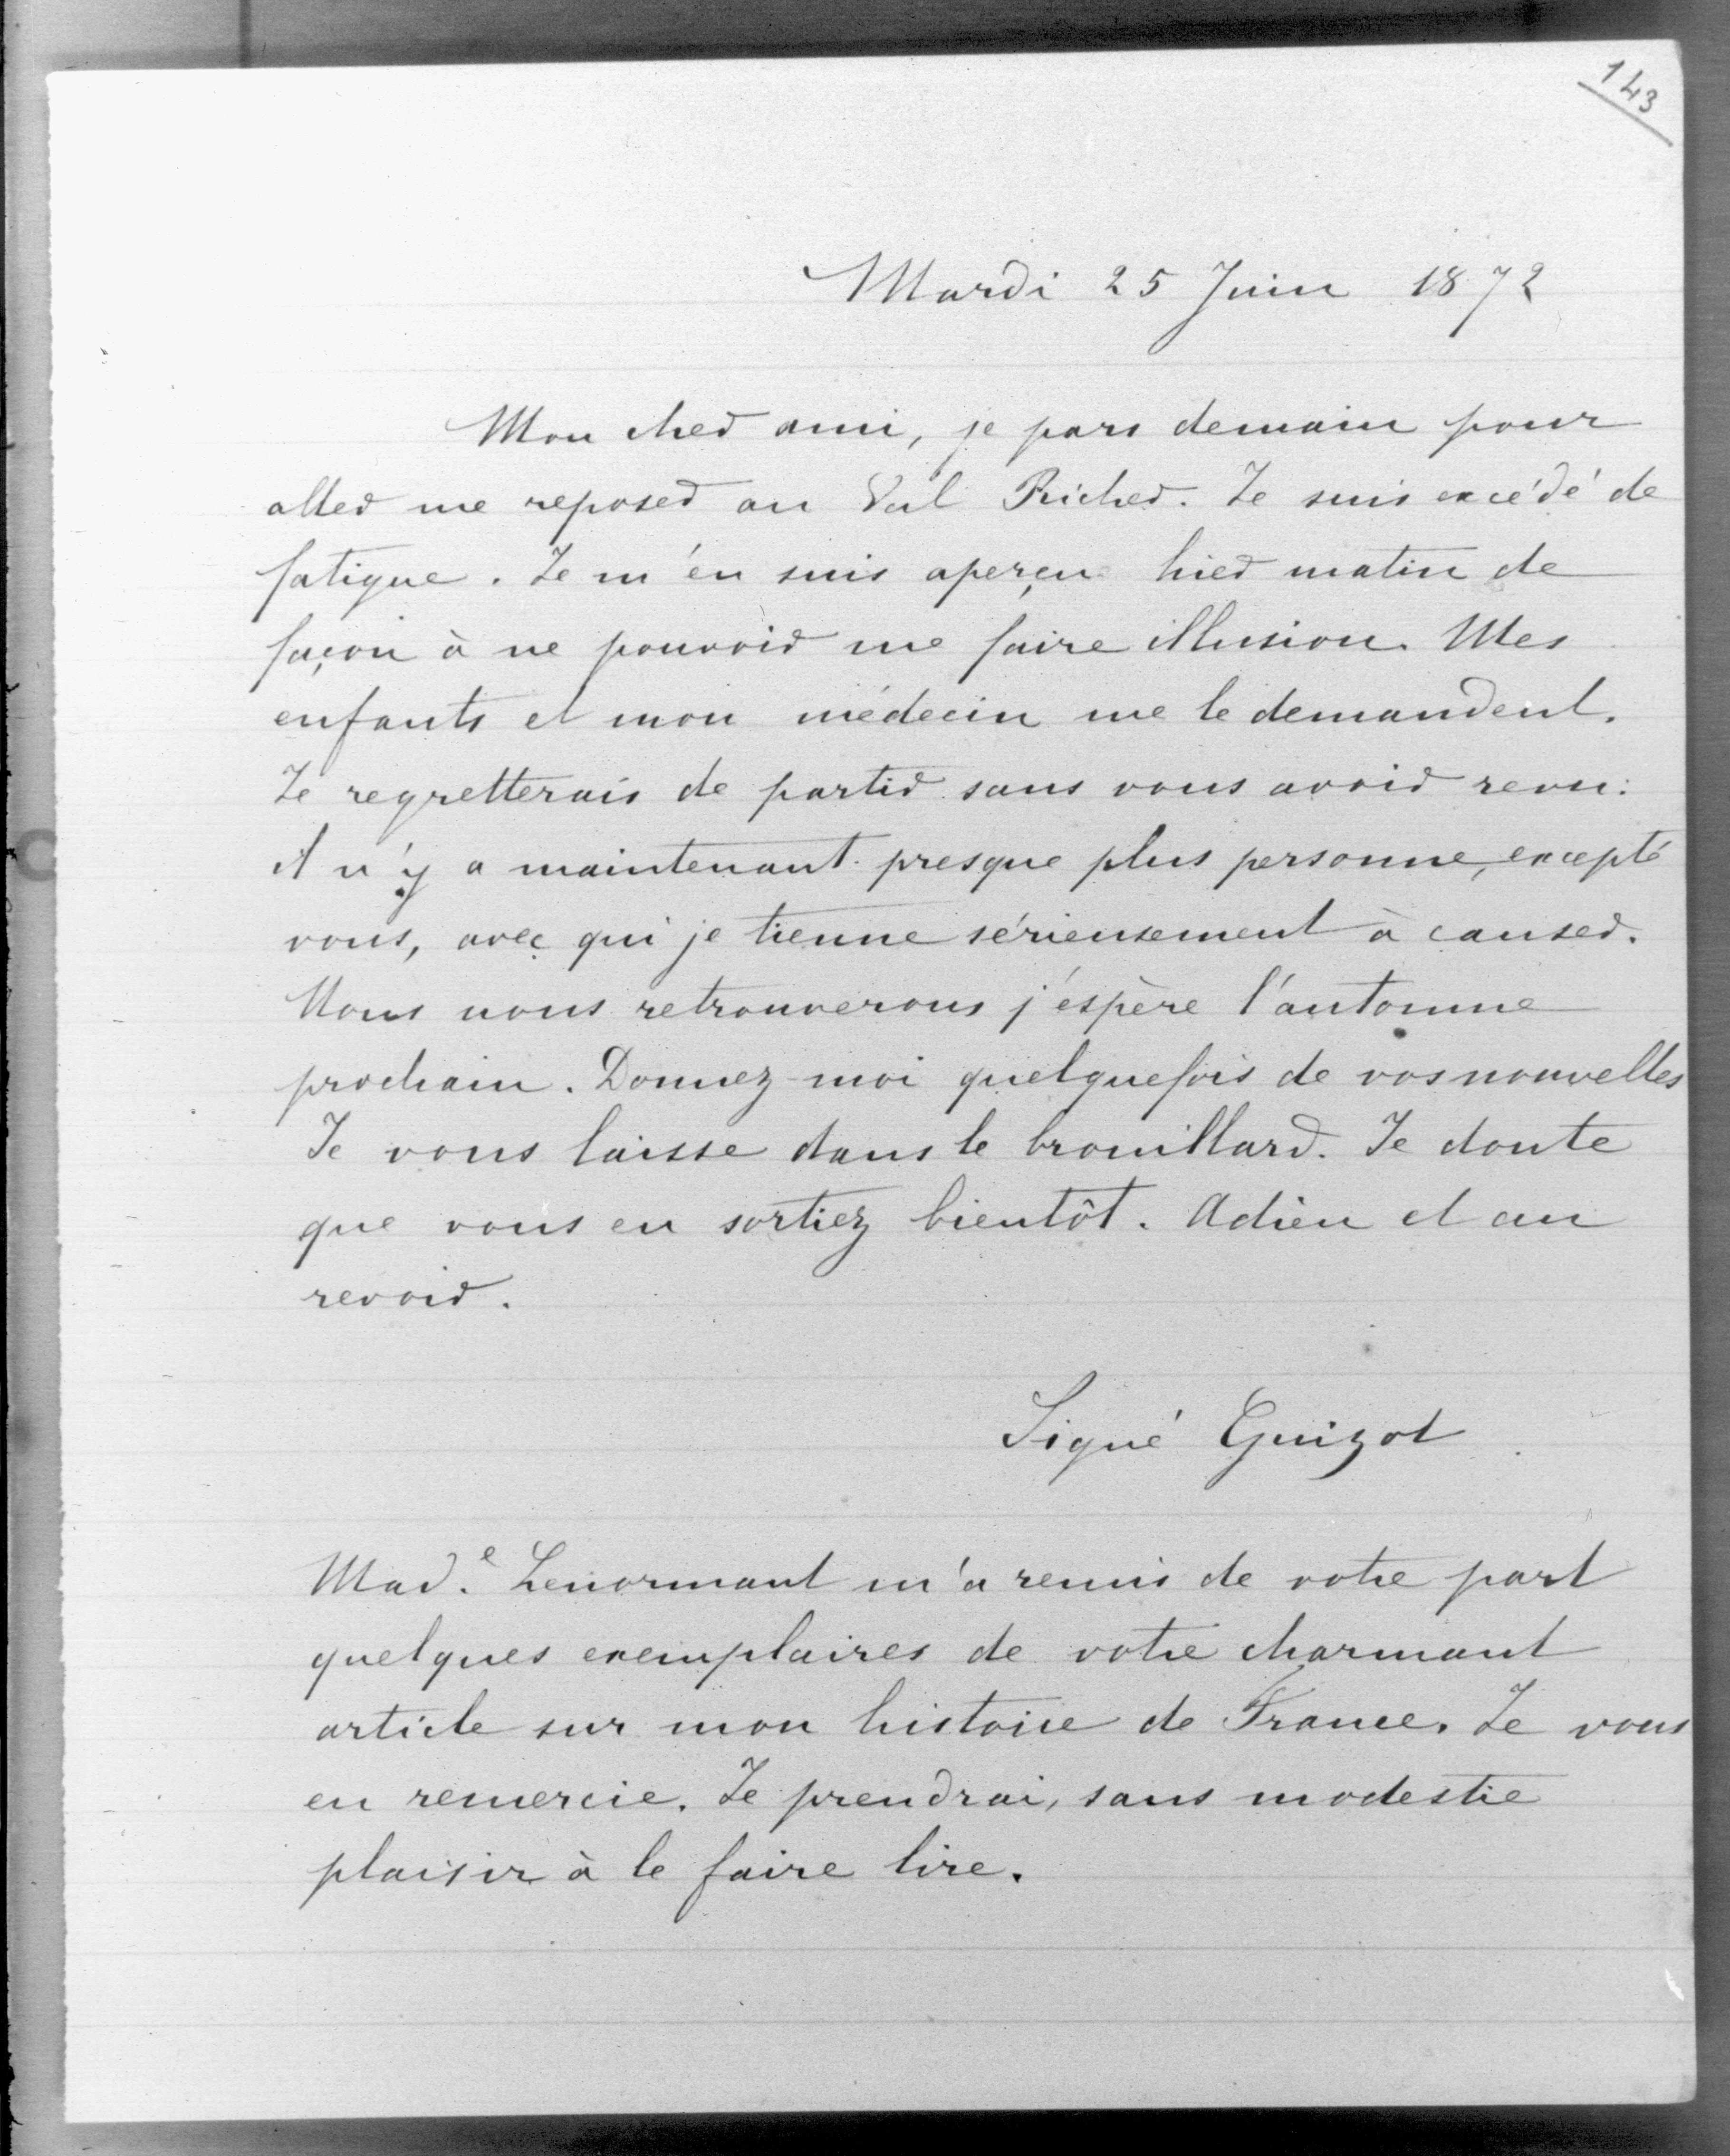 143
Mardi 25 Juin 1872
Mon cher ami, je pars demain pour
aller me reposer au Val Richer. Je suis excédé de
fatigue. Je m'en suis aperçu hier matin de
façon à ne pouvoir me faire illusion. Mes
enfants et mon médecin me le demandent.
Je regretterais de partir sans vous avoir revu:
il n'y a maintenant presque plus personne, excepté
vous, avec qui je tienne sérieusement à causer.
Nous nous retrouverons j'espère l'automne
prochain. Donnez-moi quelquefois de vos nouvelles
Je vous laisse dans le brouillard. Je doute
que vous en sortiez bientôt. Adieu et au
revoir.
Signé Guizot
Mad.e Lenormant m'a remis de votre part
quelques exemplaires de votre charmant
article sur mon histoire de France. Je vous
en remercie. Je prendrai, sans modestie
plaisir à le faire lire.